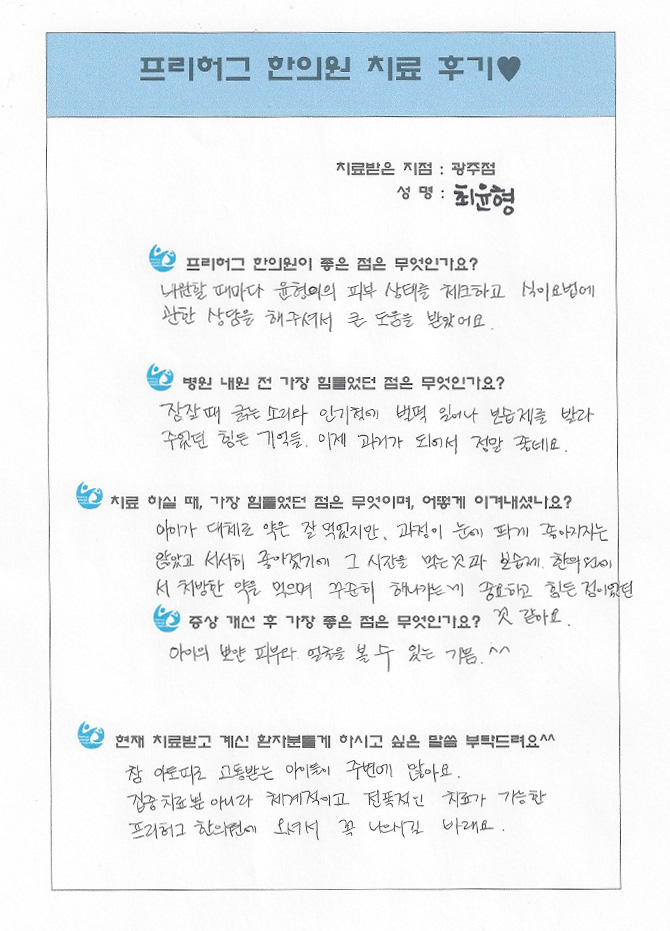 프리허그 한의원 치료 후기♥
치료받은 지점 : 광주점
성 명 : 최윤형
프리허그 한의원이 좋은 점은 무엇인가요?
내원할 때마다 윤형이의 피부 상태를 체크하고 식이요법에
관한 상담을 해주셔서 큰 도움을 받았어요.
병원 내원 전 가장 힘들었던 점은 무엇인가요?
잠잘때 긁는 소리와 인기척에 벌떡 일어나 보습제를 발라
주었던 힘든 기억들. 이제 과거가 되어서 정말 좋네요.
치료 하실 때, 가장 힘들었던 점은 무엇이며, 어떻게 이겨내셨나요?
아이가 대체로 약은 잘 먹었지만, 과정이 눈에 띄게 좋아지지는
않았고 서서히 좋아졌기에 그 시간을 먹는것과 보습제. 한의원에
서 처방한 약을 먹으며 꾸준히 해나가는게 중요하고 힘든 점이었던
것 같아요.
증상 개선 후 가장 좋은 점은 무엇인가요?
아이의 뽀얀 피부와 얼굴을 볼 수 있는 기쁨.^^
현재 치료받고 계신 환자분들게 하시고 싶은 말씀 부탁드려요^^
참 아토피로 고통받는 아이들이 주변에 많아요.
집중치료뿐 아니라 체계적이고 전폭적인 치료가 가능한
프리허그 한의원에 오셔서 꼭 나으시길 바래요.